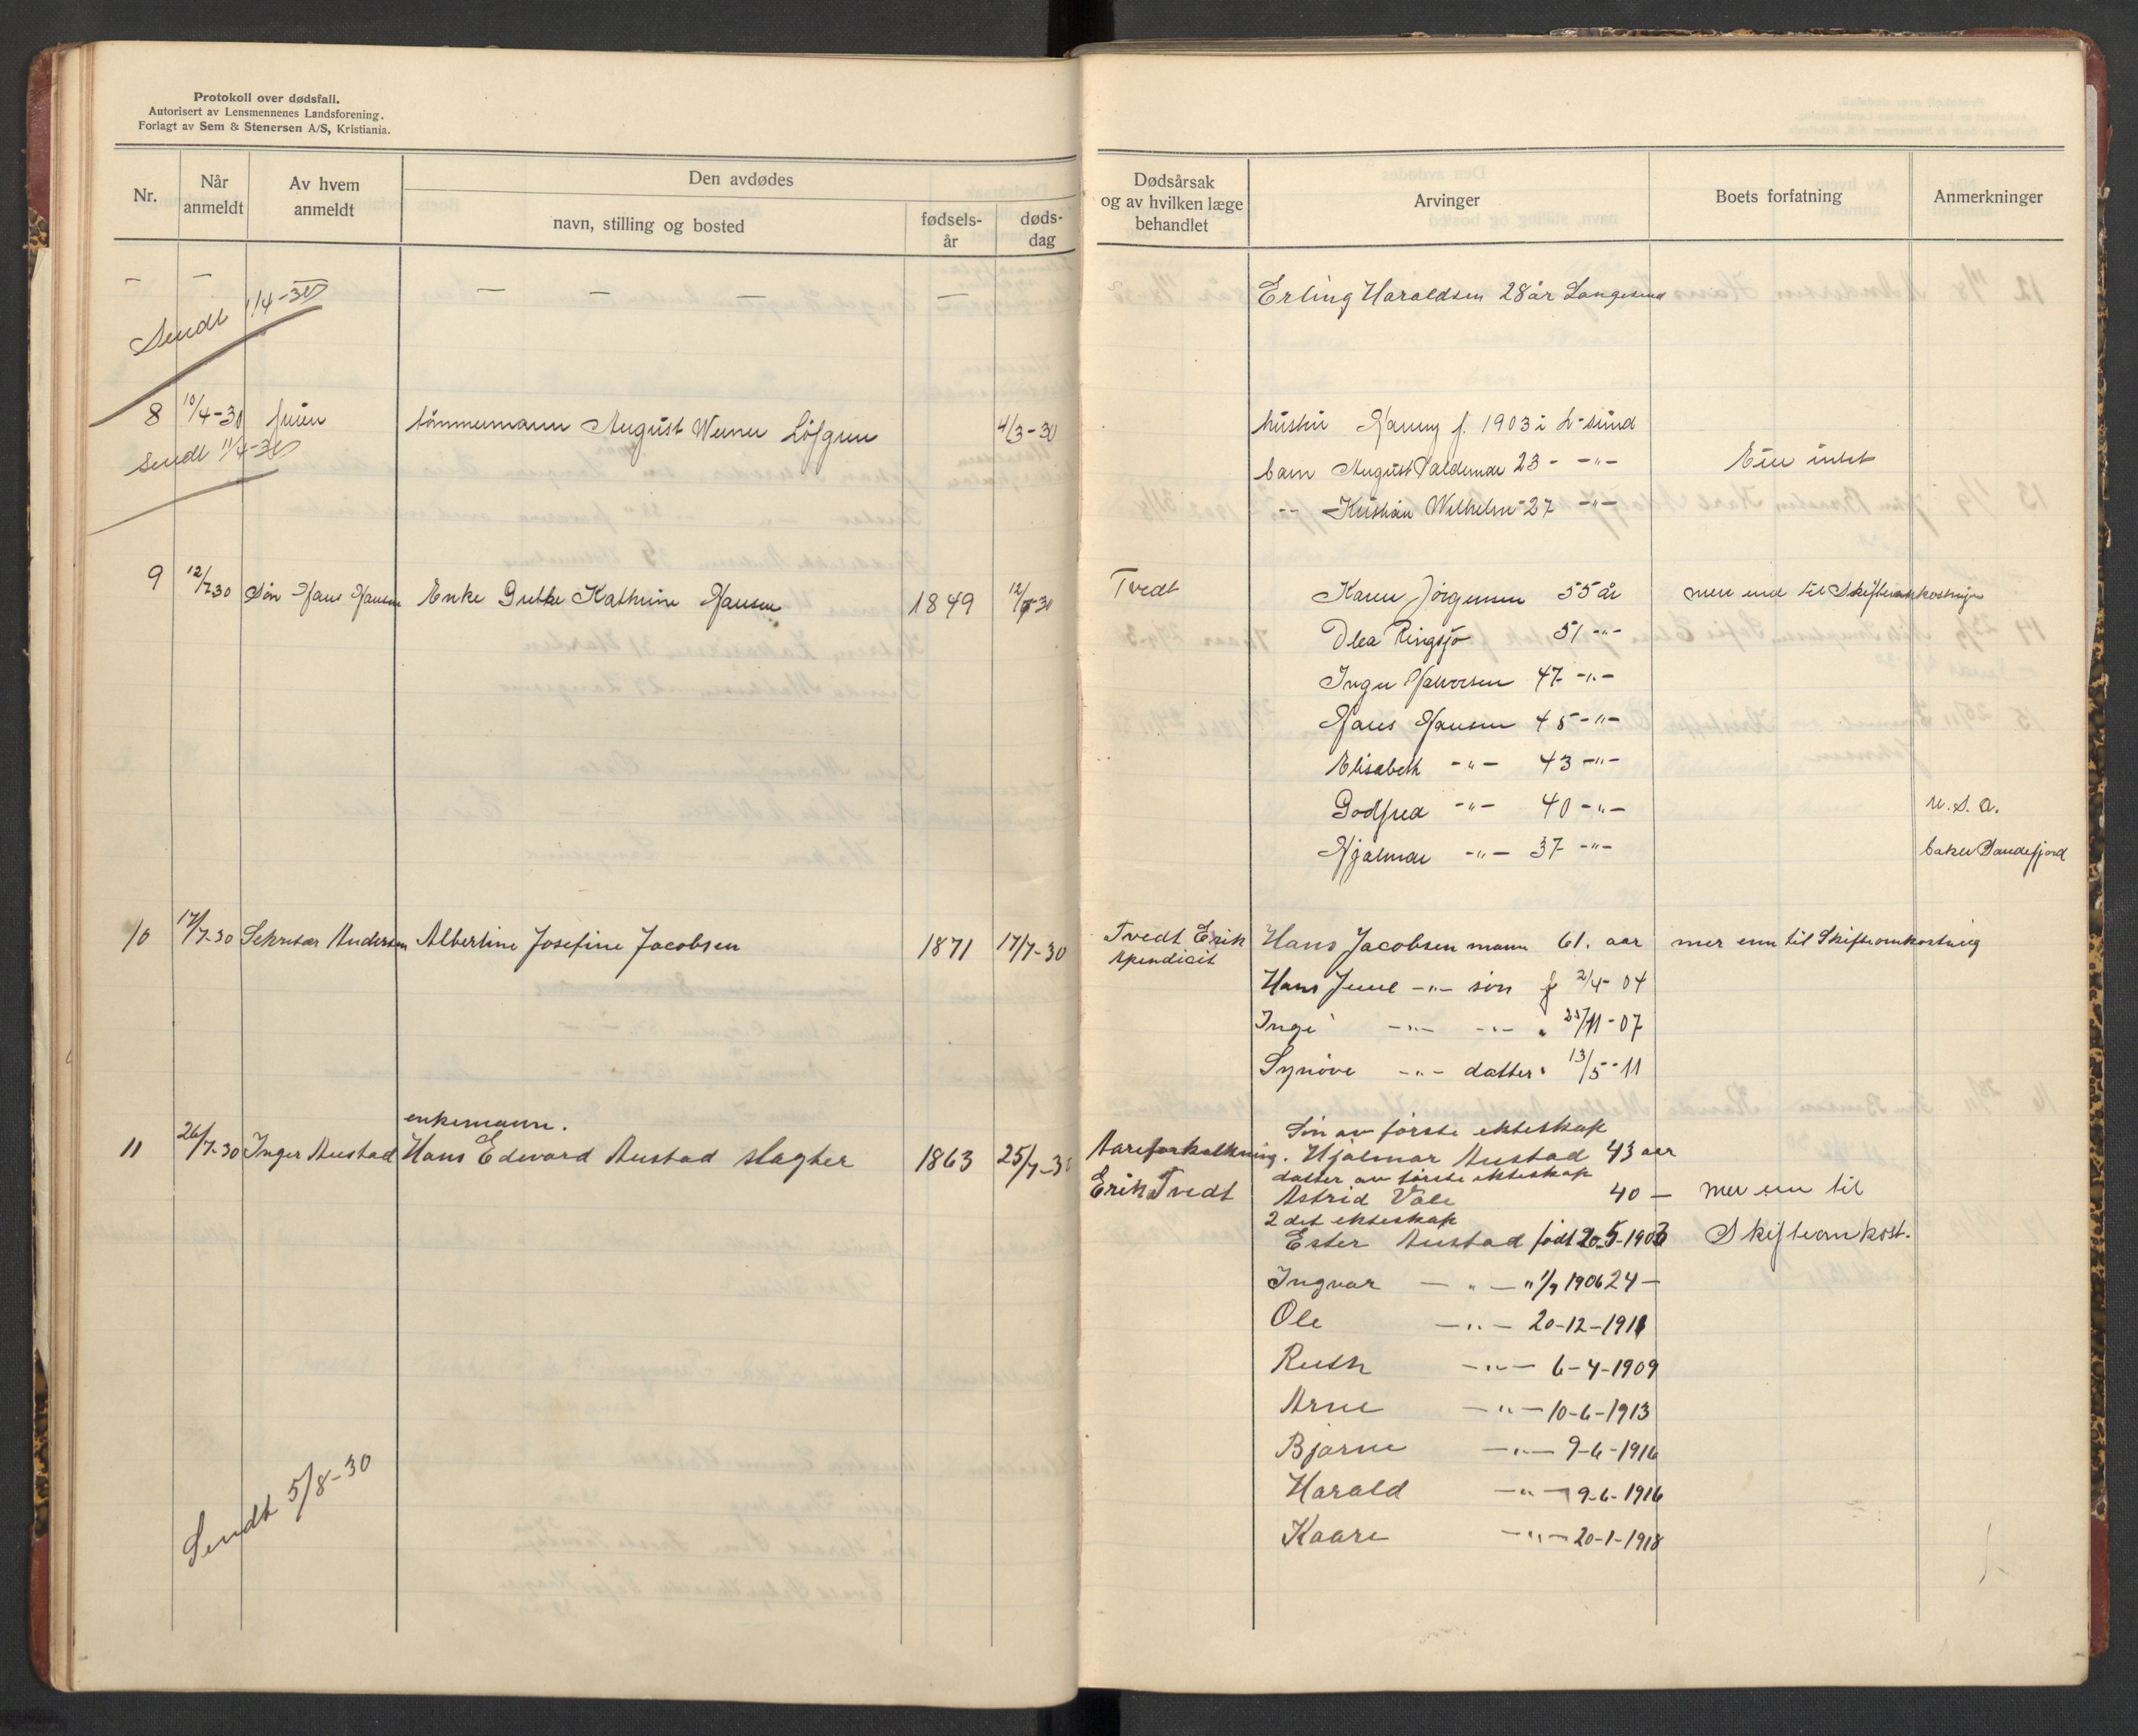 Protokoll over dødsfall.
Autorisert av Lensmennenes Landsforening.
Forlagt av Sem & Stenersen A/S, Kristiania.
Nr.
Når anmeldt
Av hvem anmeldt
Den avdødes
navn, stilling og bosted
fødsels-år
døds-dag
Dødsårsak og av hvilken læge behandlet
Arvinger
Boets forfatning
Anmerkninger
— — — — — —
Erling Haraldsen 28 år Langesund
Sendt 1/4-30
8 10/4-30 fruen tömmermann August Werner Löfgren 4/3-30
hustru Fanny f. 1903 i L-sund
barn August Valdemar 23 - -"-
Eier intet
-- Kristian Wilhelm 27 -"-
Sendt 11/4-30
9 12/7 30 Sön Hans Hansen Enke Grethe Kathrine Hansen 1849 12/7-30 Tvedt Karen Jörgensen 55 år mer end til Skifteomkostninger
Olea Ringsjö 51 -"-
Inger Halvorsen 47 -"-
Hans Hansen 45 -"-
Elisabeth -"- 43 -"-
Godfred -"- 40 -"- U.S.A.
Hjalmar -"- 37 -"- baker Sandefjord
10 17/7-30 Sekretær Andersen Albertine Josefine Jacobsen 1871 17/7-30 Tvedt Erik Hans Jacobsen mann 61. aar mer enn til Skifteomkostning
Apendicit
Hans Juul -"- sön f 2/4-04
Inge -"- -"- " 25/11-07
Synöve -"- datter " 13/5-11
enkemann.
Sön av förste ekteskap
11 26/7-30 Inger Austad Hans Edvard Austad slagter 1863 25/7-30 Aareforkalkning. Hjalmar Austad 43 aar
datter av förste ekteskap
Erik Tvedt Astrid Vale 40 — mer enn til
2det ekteskap
Ester Austad født 20-5-1903 Skifteomkost.
Ingvar — " — " 1/9 1906 24 —
Ole — " — 20-12-1911
Ruth — " — 6-4-1909
Arne — " — 10-6-1913
Bjarne — " — 9-6-1916
Harald — " — 9-6-1916
Kaare — " — 20-1-1918
Sendt 5/8-30